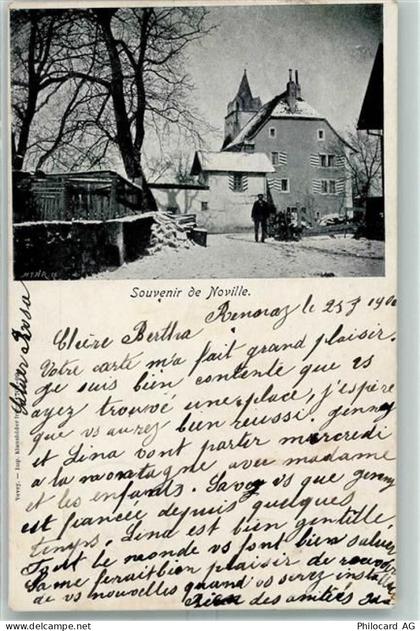 MTNR
Souvenir de Noville.
Renoraz le 25 J 190
Chère Bertha
Votre carte m'a fait grand plaisir.
je suis bien contente que vs
ayez trouvé une place, j'espère
que vs aurez bien réussi. Jenny
et Lina vont partir mercredi
à la montagne, avec madame
et les enfants. Savez vs que Jenny
est fiancée depuis quelques
temps. Lina est bien gentille,
tout le monde vs font bien saluer
Sa me ferait bien plaisir de
de vs nouvelles quand vs serez
Bien des amitiés
Vevey. — Imp. Klausfelder
Philocard AG
www.philocard.de